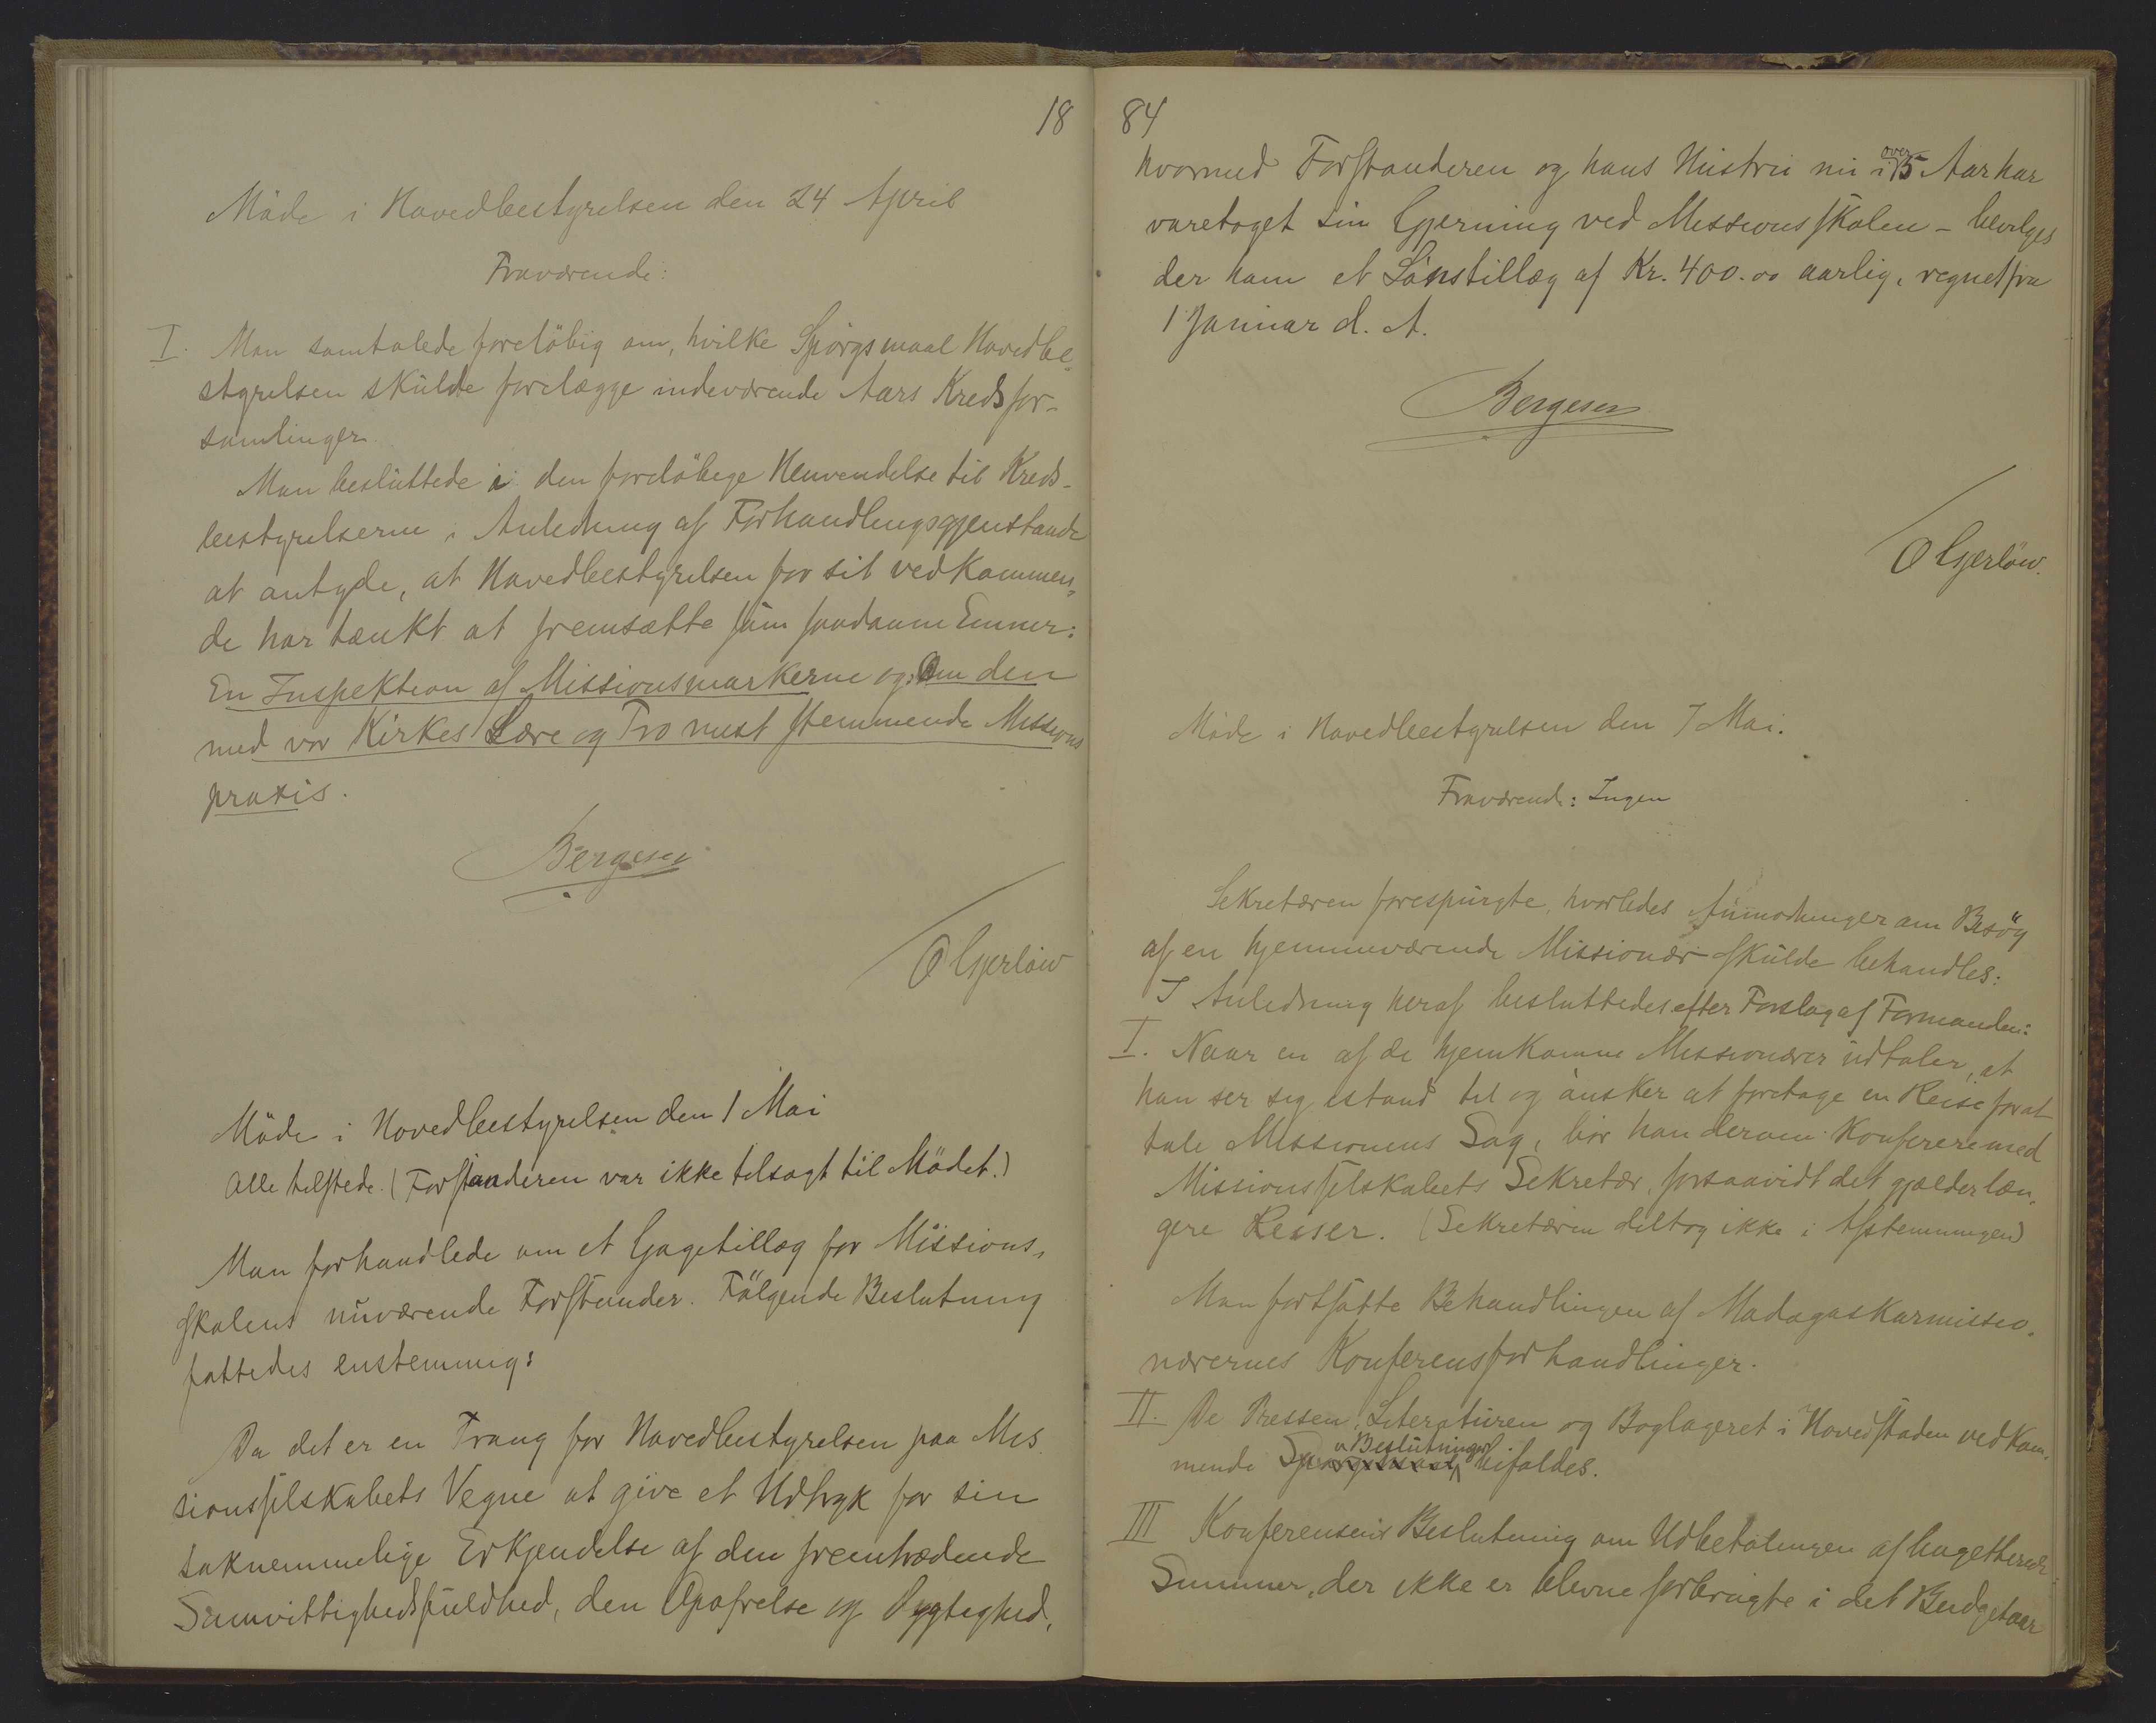 18
Möde i Hovedbestyrelsen den 24 April
Fraværende:
I. Man samtalede foreløbig om, hvilke Spörgsmaal Hovedbe-
styrelsen skulde forelægge indeværende Aars Kredsfor-
samlinger
Man besluttede i den foreløbige Henvendelse til Kreds-
bestyrelserne i Anledning af Forhandlingsgjenstande
at antyde, at Hovedbestyrelsen for sit vedkommen-
de har tænkt at fremsætte som saadanne Emner:
En Inspektion af Missionsmarkerne og: Om den
med vor Kirkes Lære og Tro mest stemmende Missions
praxis.
Bergesen
O Gjerløw
Möde i Hovedbestyrelsen den 1 Mai
Alle tilstede. (Forstanderen var ikke tilsagt til Mödet.)
Man forhandlede om et Gagetillæg for Missions-
skolens nuværende Forstander. Fölgende Beslutning
fattedes enstemmig:
Da det er en Trang for Hovedbestyrelsen paa Mis
sionsselskabets Vegne at give et Udtryk for sin
taknemmelige Erkjendelse af den fremtrædende
Samvittighedsfuldhed, den Opofrelse og Dygtighed,
84
hvormed Forstanderen og hans Hustru nu i over 15 Aar har
varetaget sin Gjerning ved Missionsskolen - bevilges
der ham et Lönstillæg af Kr. 400.00 aarlig, regnet fra
1 Januar d. A.
Bergesen
O Gjerlöw.
Möde i Hovedbestyrelsen den 7 Mai.
Fraværende: Ingen
Sekretæren forespurgte, hvorledes Anmodninger om Besög
af en hjemmeværende Missionær skulde behandles:
I Anledning heraf besluttedes efter Forslag af Formanden:
I. Naar en af de hjemkomne Missionærer udtaler, at
han ser sig istand til og ønsker at foretage en Reise for at
tale Missionens Sag, bör han derom konferere med
Missionsselskabets Sekretær, forsaavidt det gjælder læn-
gere Reiser. (Sekretæren deltog ikke i Afstemningen)
Man fortsatte Behandlingen af Madagaskarmissio-
nærernes Konferensforhandlinger.
II. De Pressen, Literaturen og Boglageret i Hovedstaden vedkom-
mende Spörgsmaal Beslutninger bifaldes.
III Konferensens Beslutning om Udbetalingen af budgetterede
Summer, der ikke er blevne forbrugte i det Budgetaar